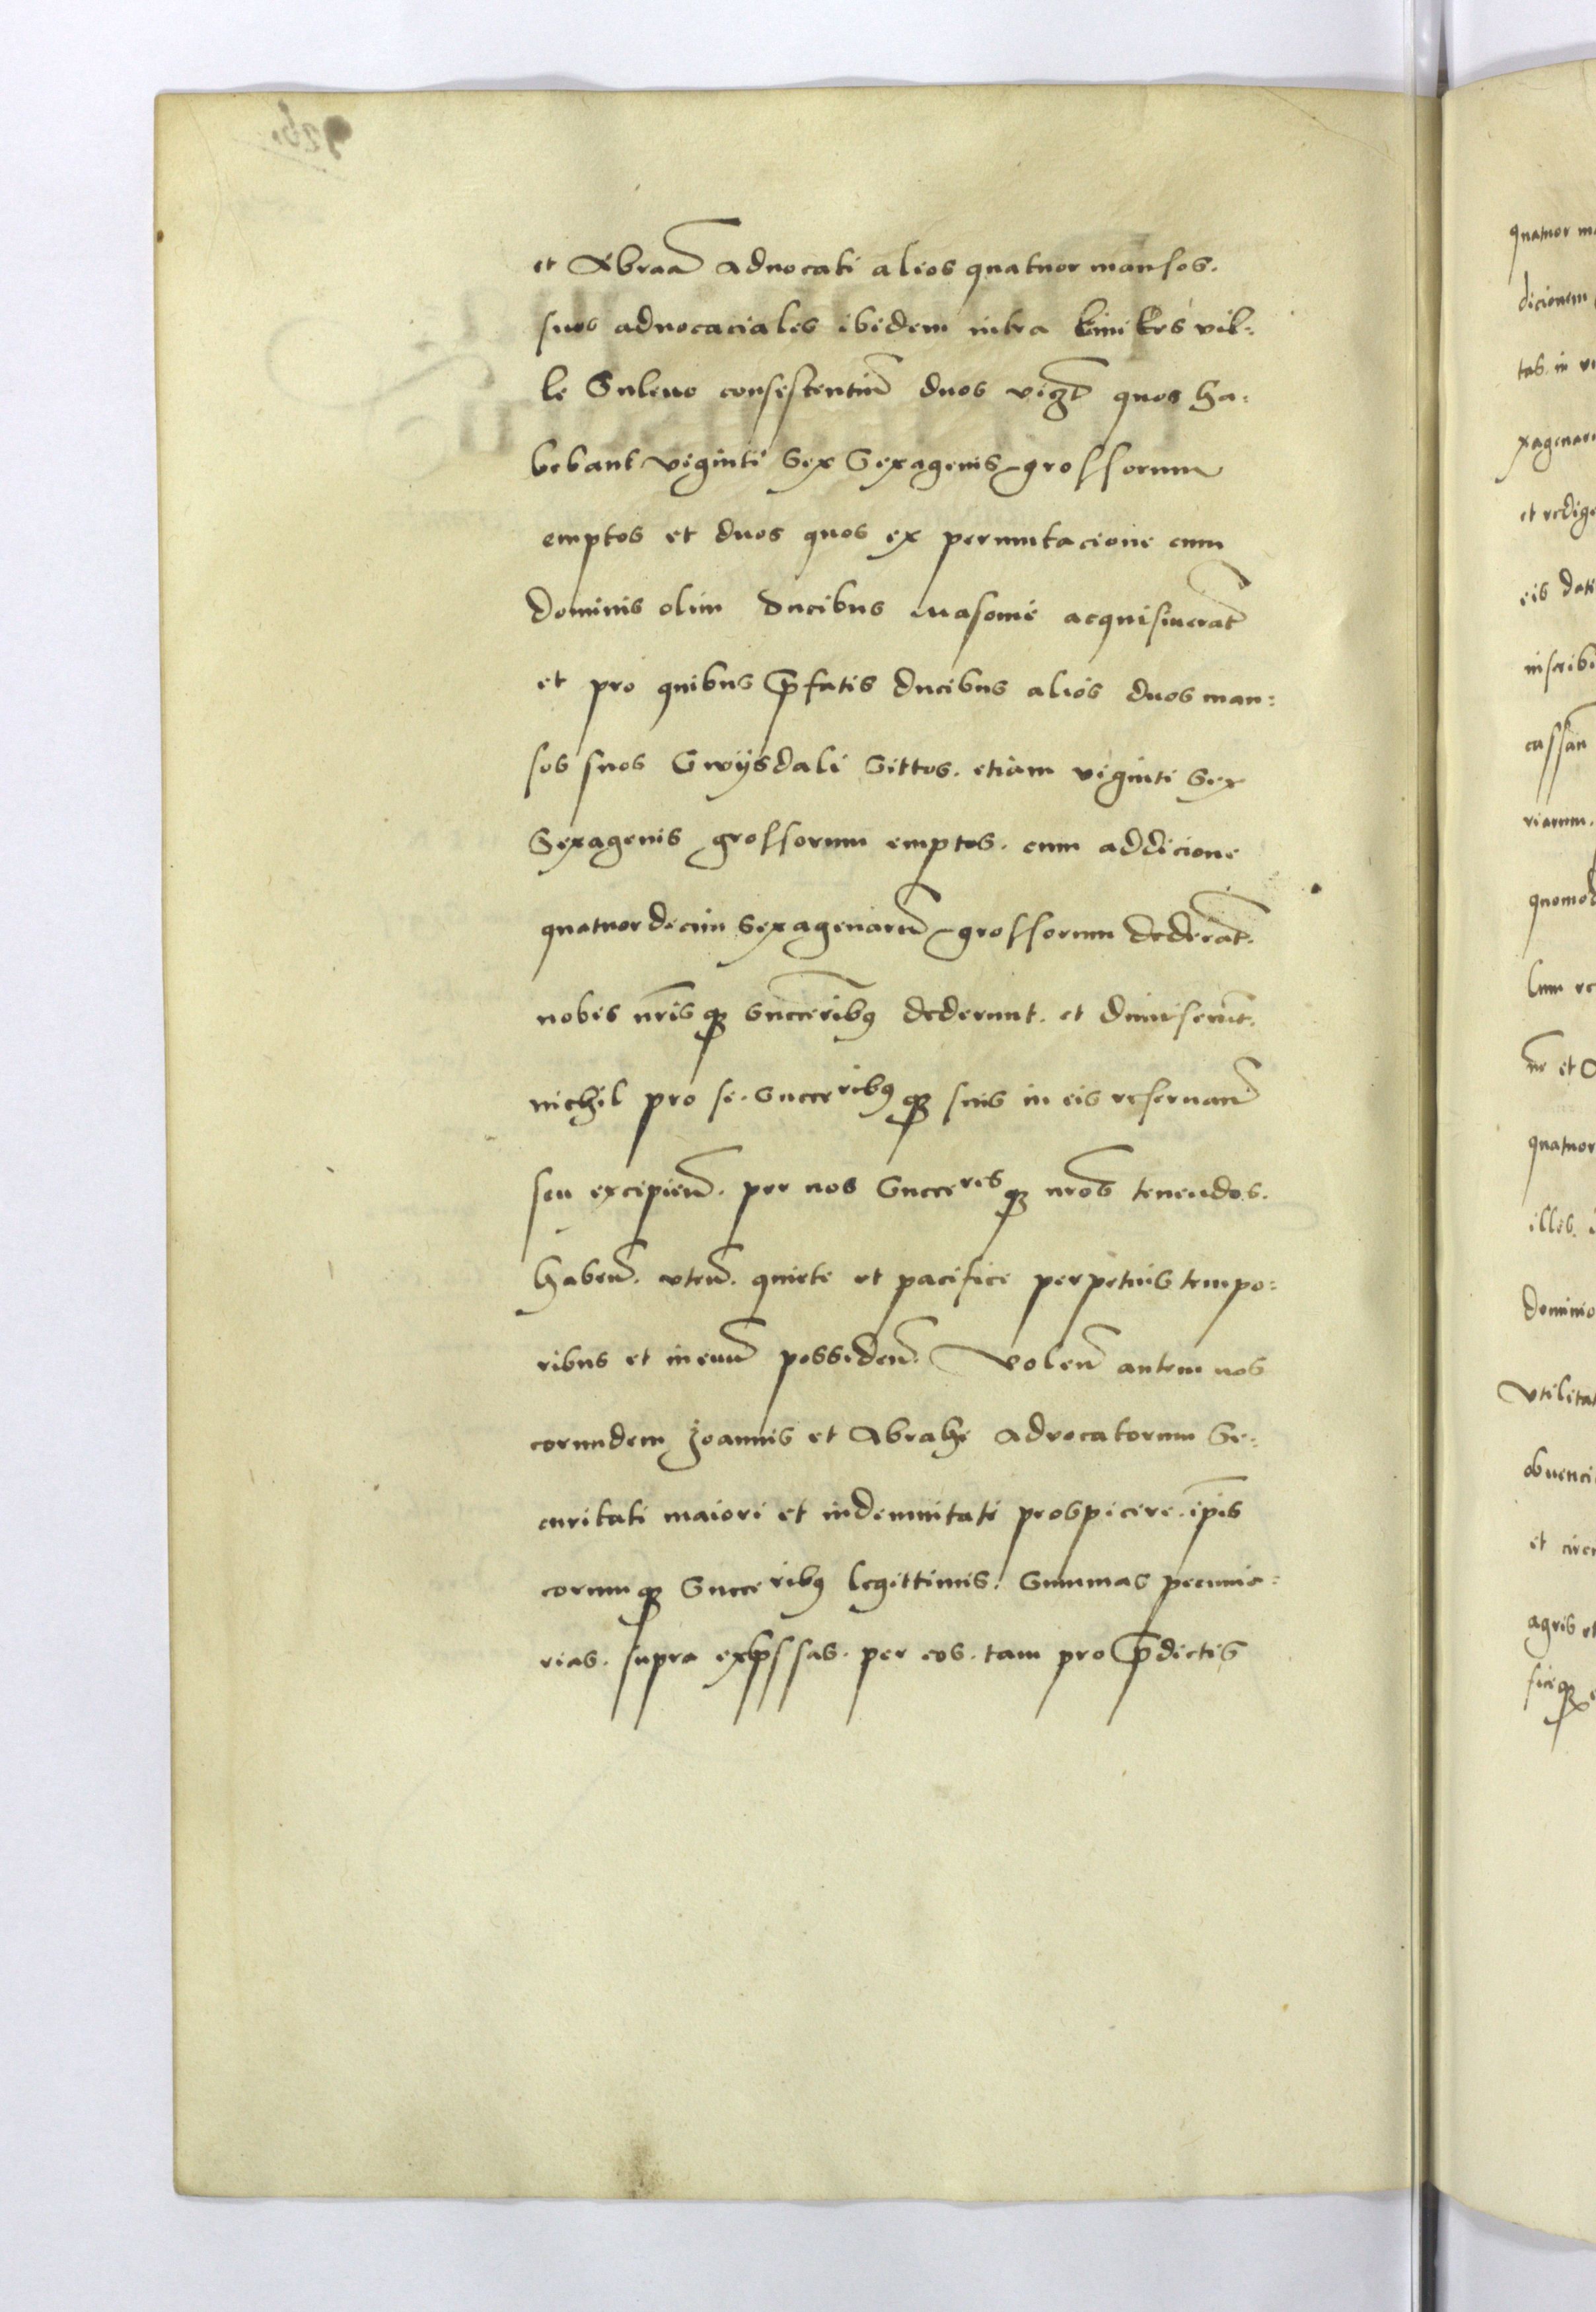 et Abraā Aduocati alios quatuor mansos.
suos aduocaciales ibidem intra limites vil=
le Suleuo consistentiū duos vigꝫ quos ha=
bebant viginti Sex Sexagenis grossorum
emptos et duos quos ex permutacione cum
Dominis olim Ducibus Masouie acquisiuerāt
et pro quibus p̄fatis Ducibus alios duos man=
sos suos Gwysdali Sittos. etiam viginti Sex
Sexagenis grossorum emptos. cum addicione
quatuordecim Sexagenarū grossorum dederāt.
nobis nr̄is qꝫ Succeribꝫ dederunt. et dimiserūt.
nichil pro se. Succeribꝫ qꝫ suis in eis reseruan̄
seu excipien̄. per nos Succeres qꝫ nr̄os tenendos.
haben̄. vten̄. quiete et pacifice perpetuis tempo=
ribus et in euū possiden̄. Volen̄ autem nos
eorundem Joannis et Abrahe Aduocatorum Se=
curitati maiori et indemnitati prospicere. ip̄is
eorumqꝫ Succeribꝫ legittimis. Summas pecunia=
rias. supra exp̄ssas. per eos. tam pro p̄dictis
quatuor
dicionem
tas. in
xagenar
et redig
eis dati
inscribi
cassan
riarum.
quomod
lum re
nr̄ et
quatuor
illis.
dominio
Vtilitat
obuenci
et circ
agris et
ficeqꝫ